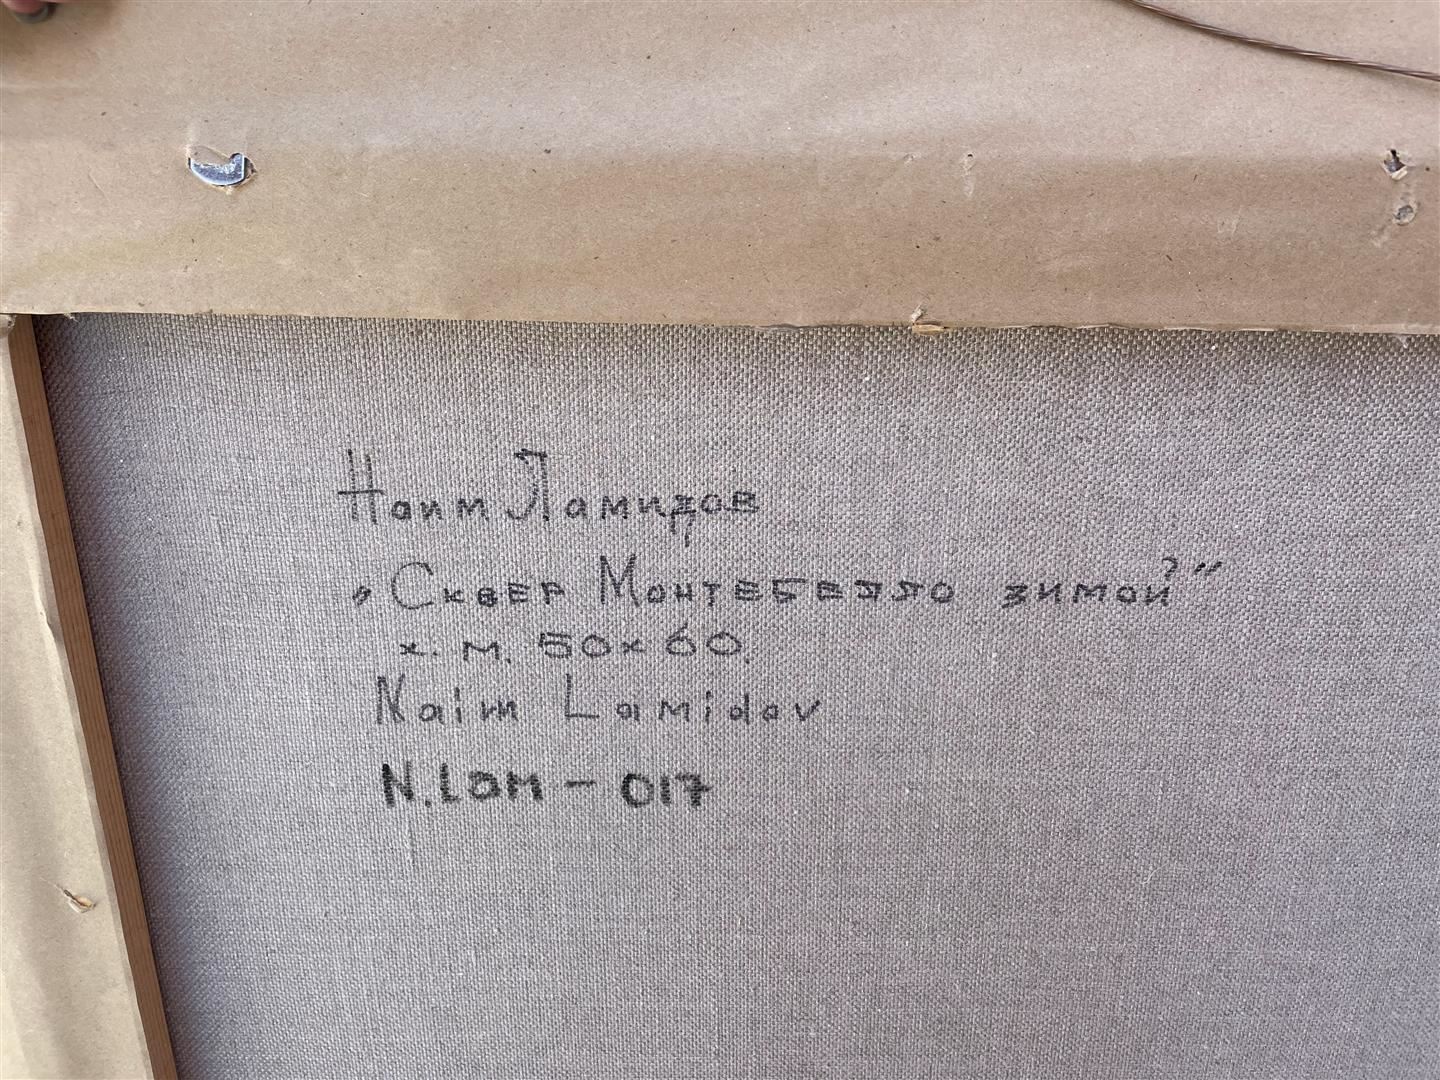 Наим Ламидов
„Сквер Монтебелло зимой"
х. м. 50х60.
Naim Lamidov
N.Lam – 017